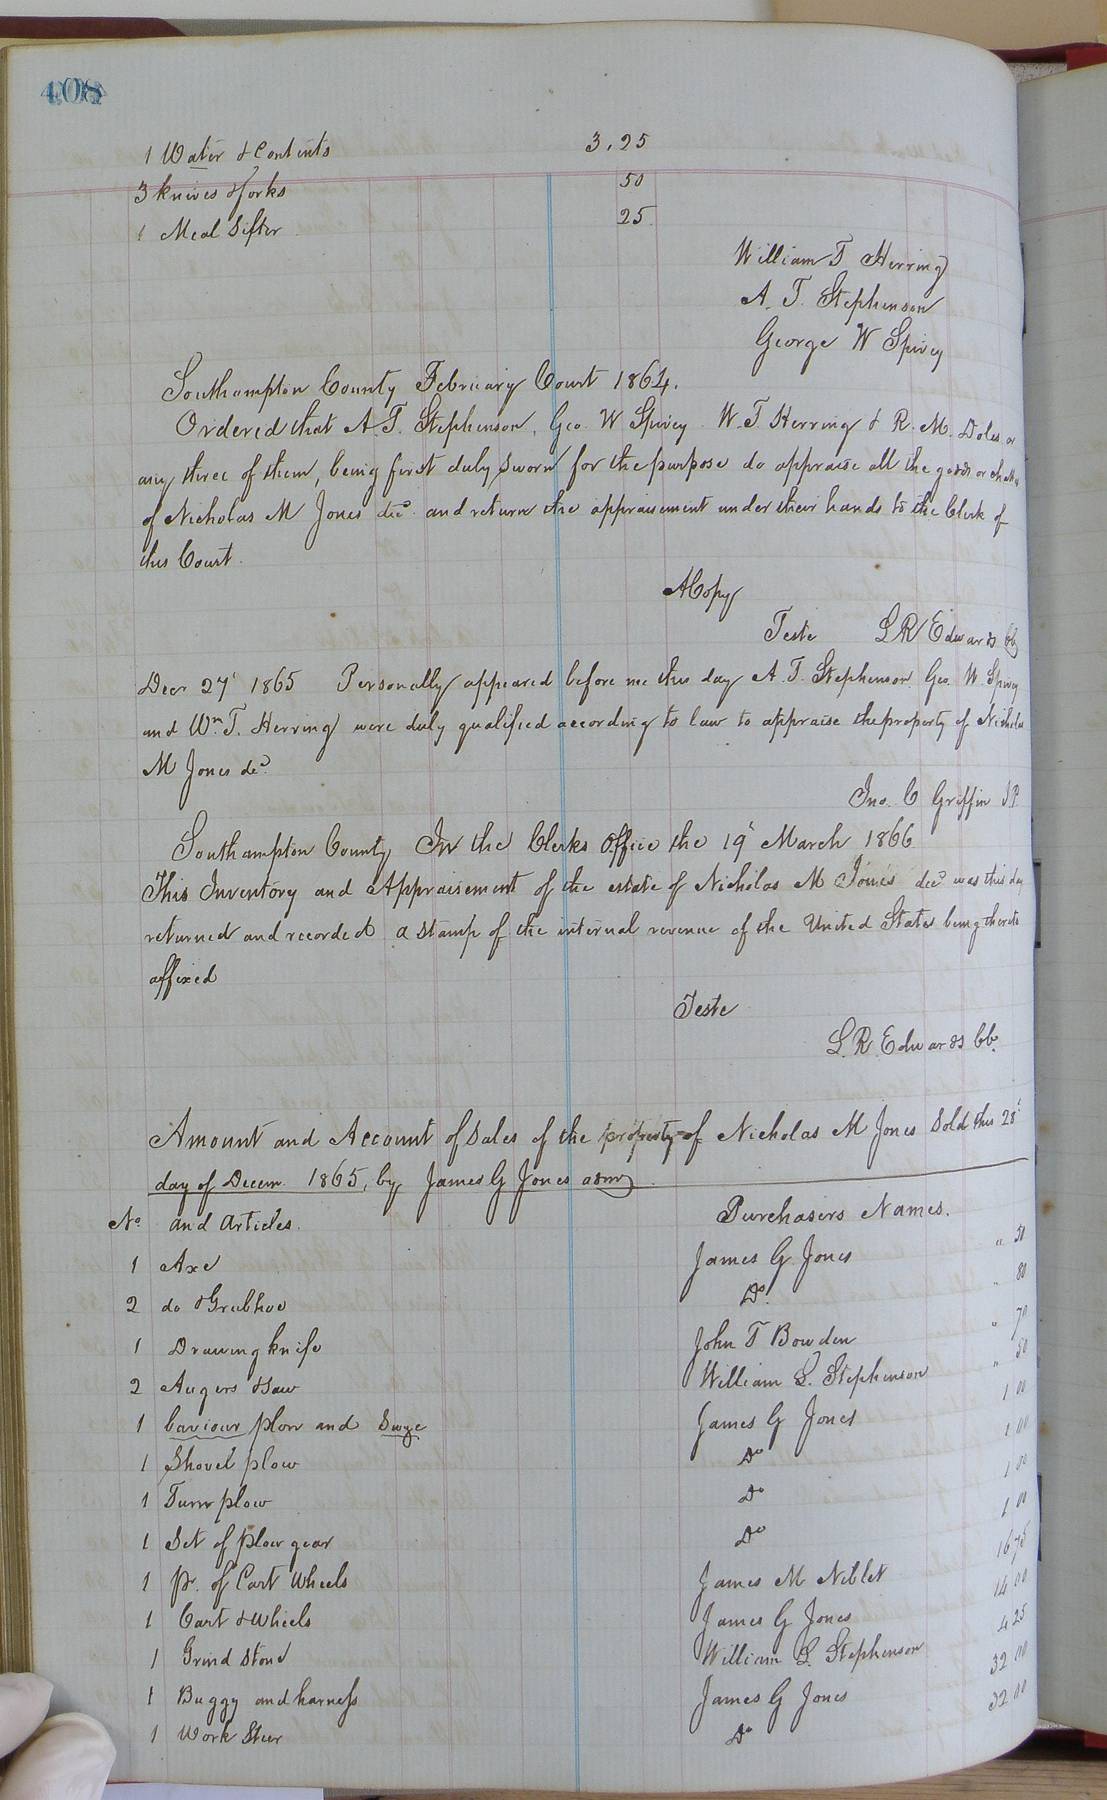 408
1 Water & Contents 3.25
3 knives & forks 50
1 Meal Sifter 25
William T Herring
A. T. Stephenson
George W Spivey
Southampton County February Court 1864.
Ordered that A. T. Stephenson, Geo. W Spivey W. T. Herring & R. M. Doles or
any three of them, being first duly sworn for the purpose do appraise all the goods or
of Nicholas M Jones decd. and return the appraisement under their hands to the Clerk of
this Court.
A Copy
Teste L R Edwards
Decr 27' 1865 Personally appeared before me this day A. T. Stephenson Geo. W. Spivey
and Wm. T. Herring were duly qualified according to law to appraise the property of Nicholas
M Jones decd.
Jno. C Griffin J P
Southampton County In the Clerks Office the 19' March 1866
This Inventory and Appraisement of the estate of Nicholas M Jones decd was this day
returned and recorded a stamp of the internal revenue of the United States being thereto
affixed
Teste
L. R. Edwards Cc.
Amount and Account of Sales of the property of Nicholas M Jones Sold this 28'
day of Decem. 1865, by James G Jones adm
No. and Articles. Purchasers Names.
1 Axe James G Jones " 50
2 do & Grubhoe Do. " 80
1 Drawing knife John T Bowden " 70
2 Augers & Saw William L. Stephenson " 50
1 Caviour plow and Swge James G Jones 1 00
1 Shovel plow Do 1 00
1 Turn plow Do 1 00
1 Set of plow gear Do 1 00
1 Pr. of Cart Wheels James M Niblet 16 75
1 Cart & Wheels James G Jones 14 00
1 Grind Stone William L. Stephenson 4 25
1 Buggy and harness James G Jones 32 00
1 Work Steer Do 32 00